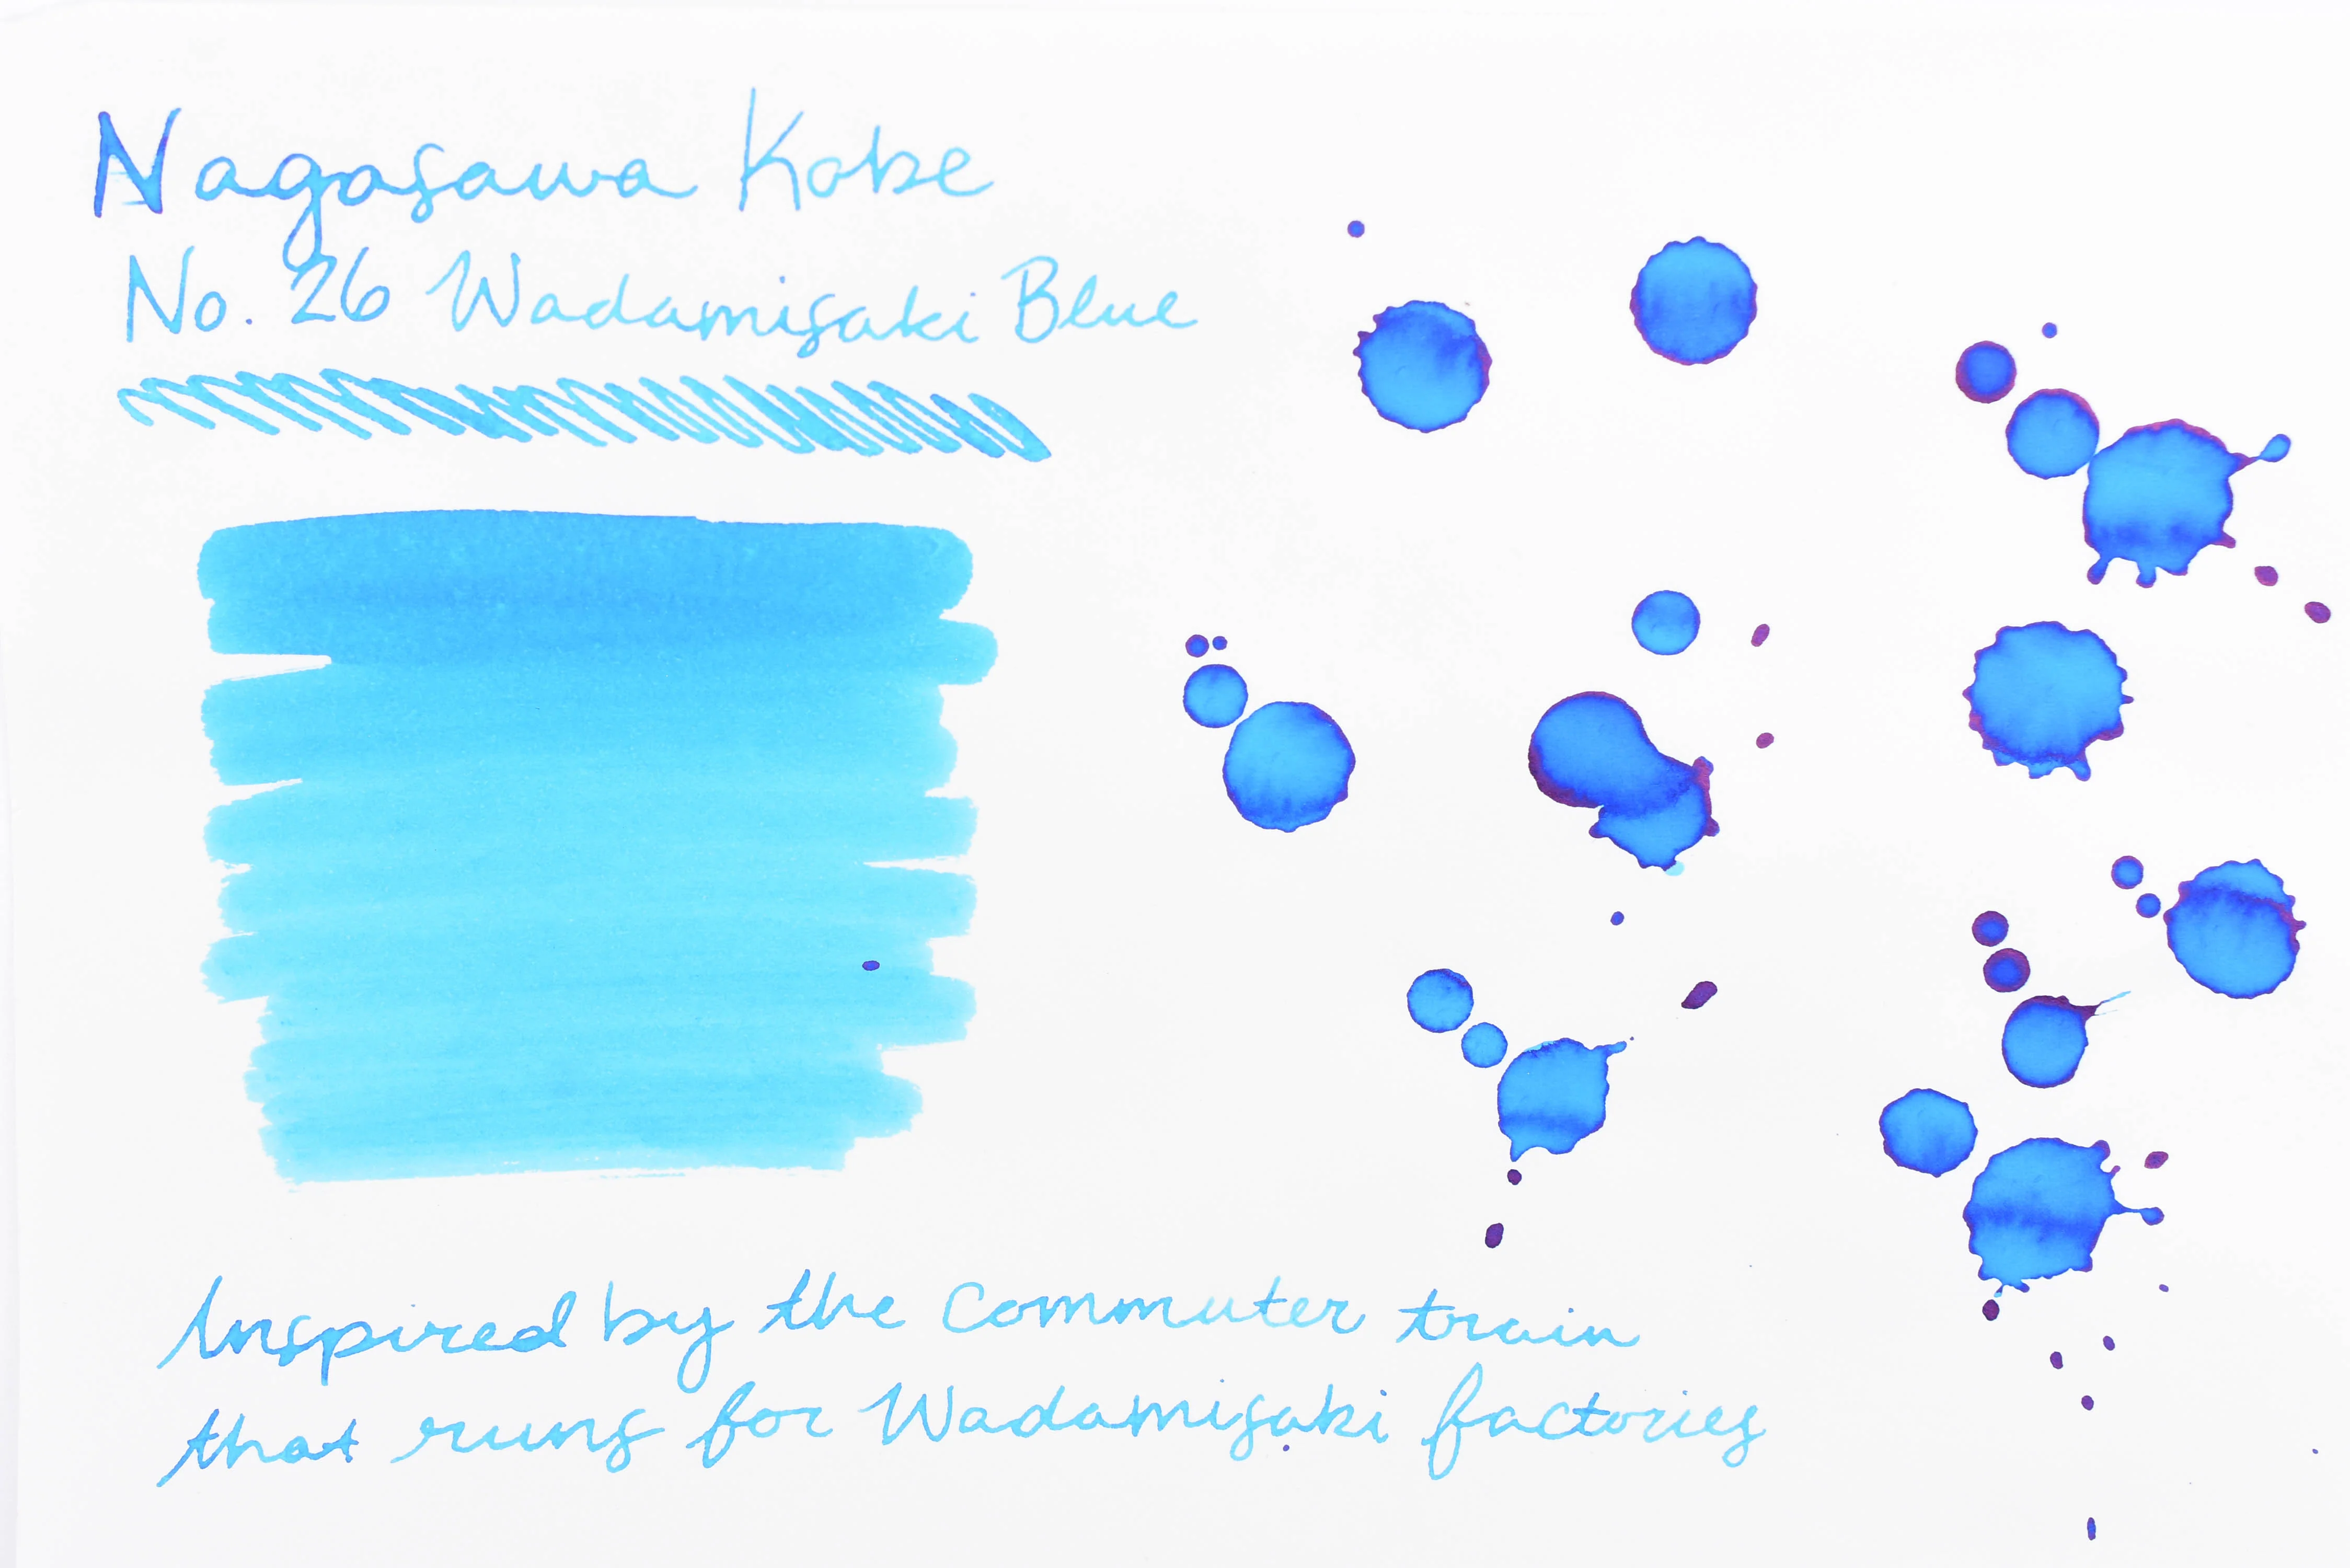 Nagasawa Kobe
No. 26 Wadamisaki Blue
Inspired by the commuter train
that runs for Wadamisaki factories